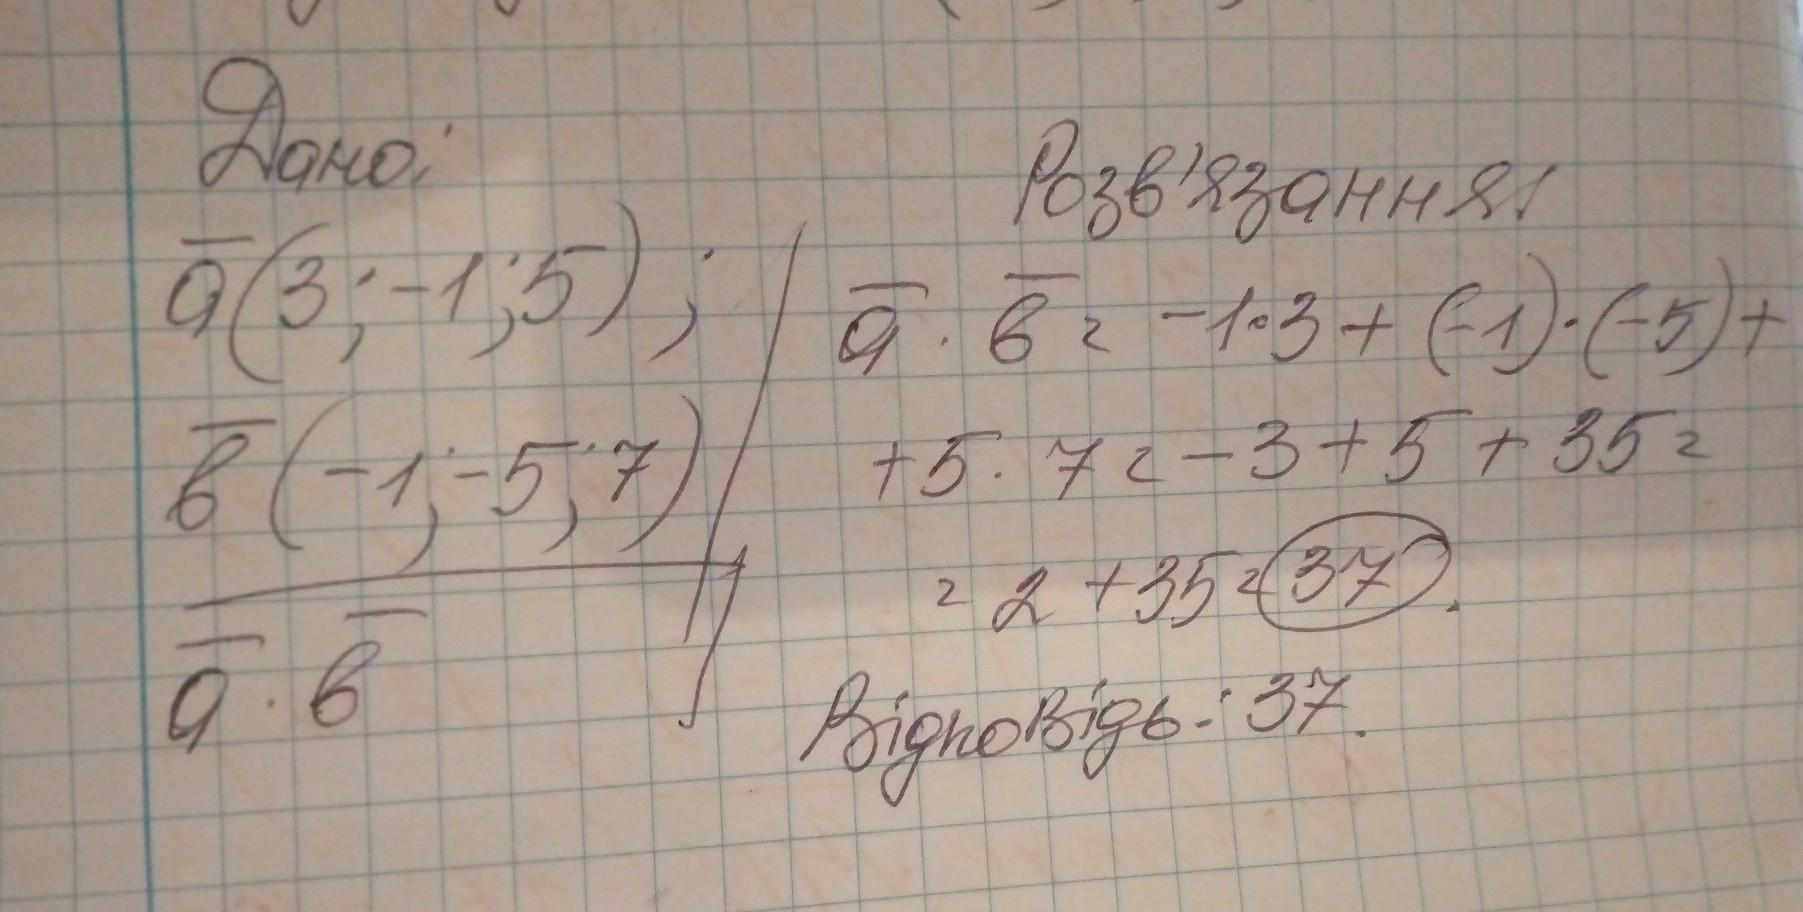 Дано:
a̅(3; -1; 5);
b̅(-1; -5; 7)
a̅ · b̅
Розв'язання:
a̅ · b̅ = -1·3 + (-1)·(-5) +
+ 5 · 7 = -3 + 5 + 35 =
= 2 + 35 = 37.
Відповідь: 37.